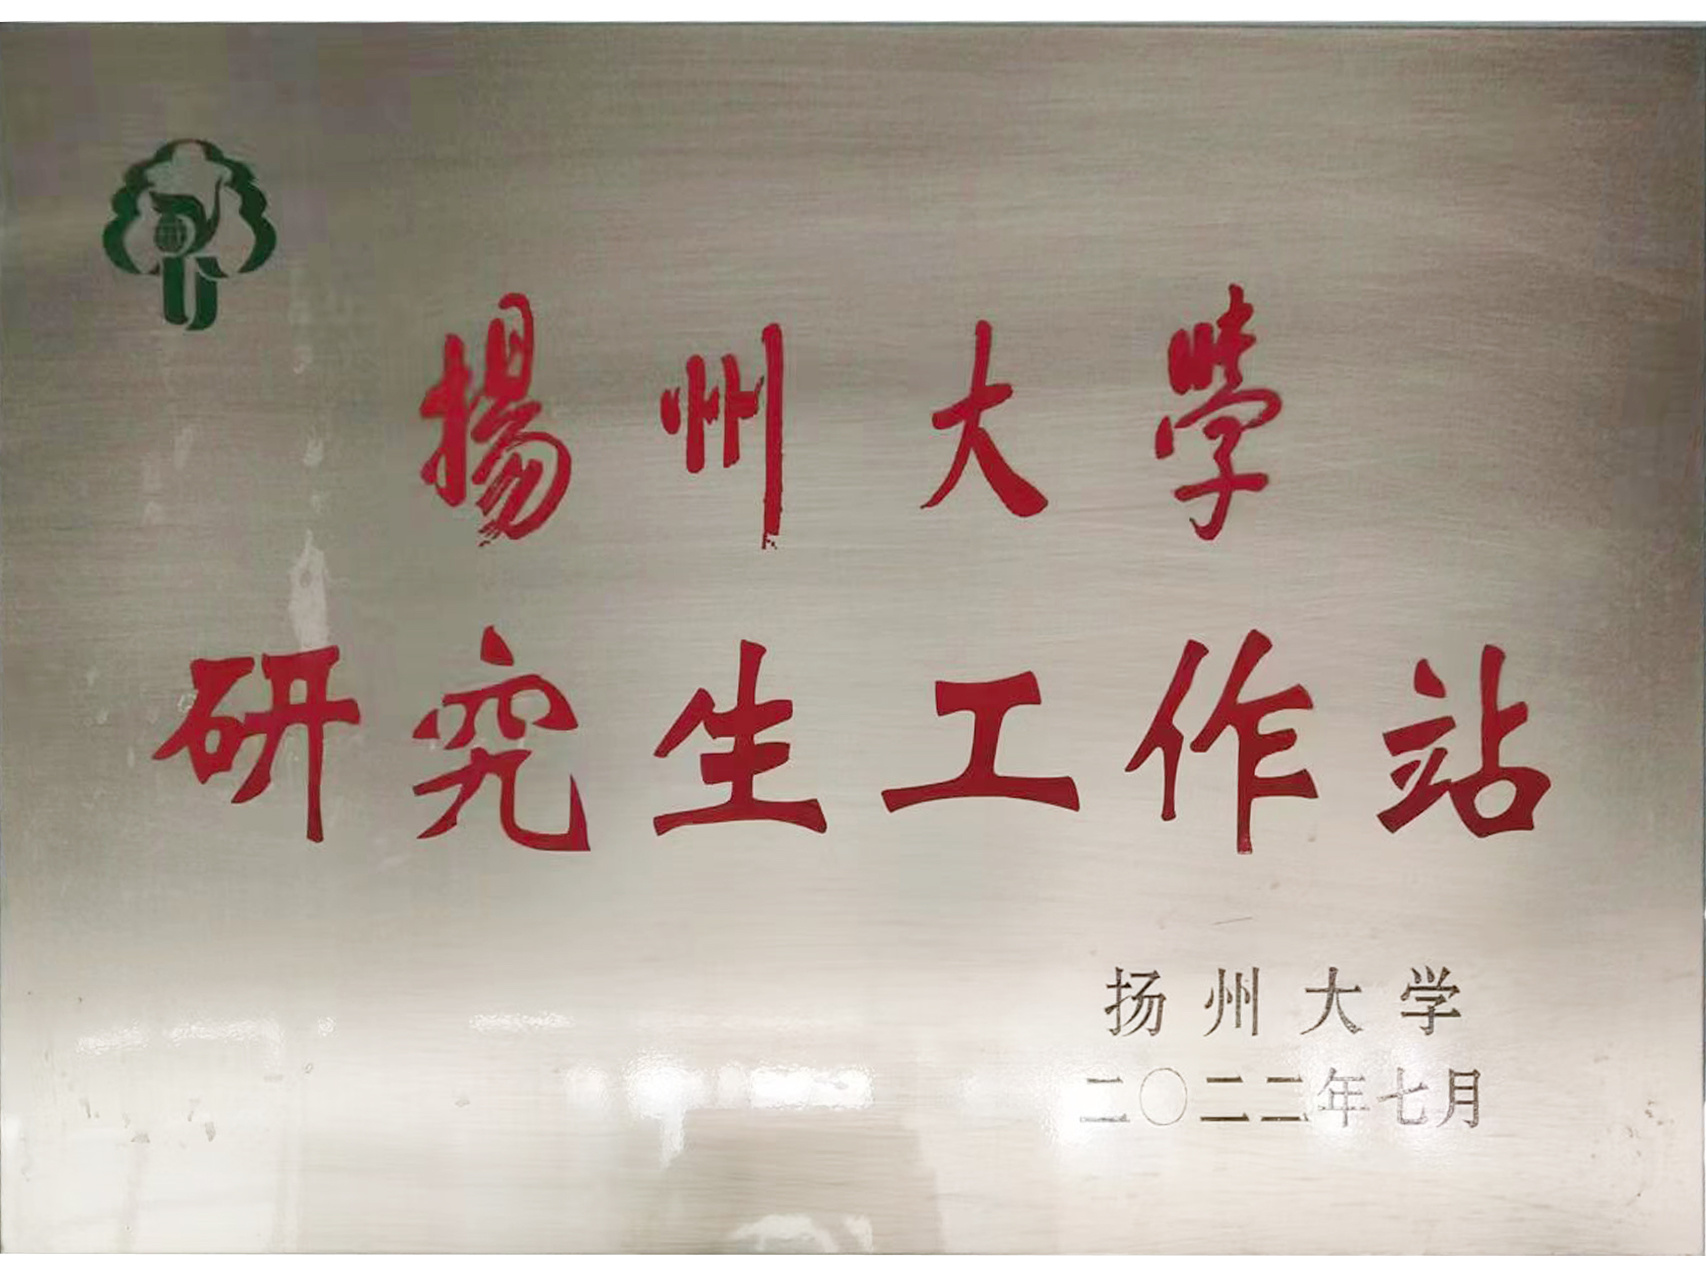 揚州大學
研究生工作站
扬州大学
二〇二二年七月